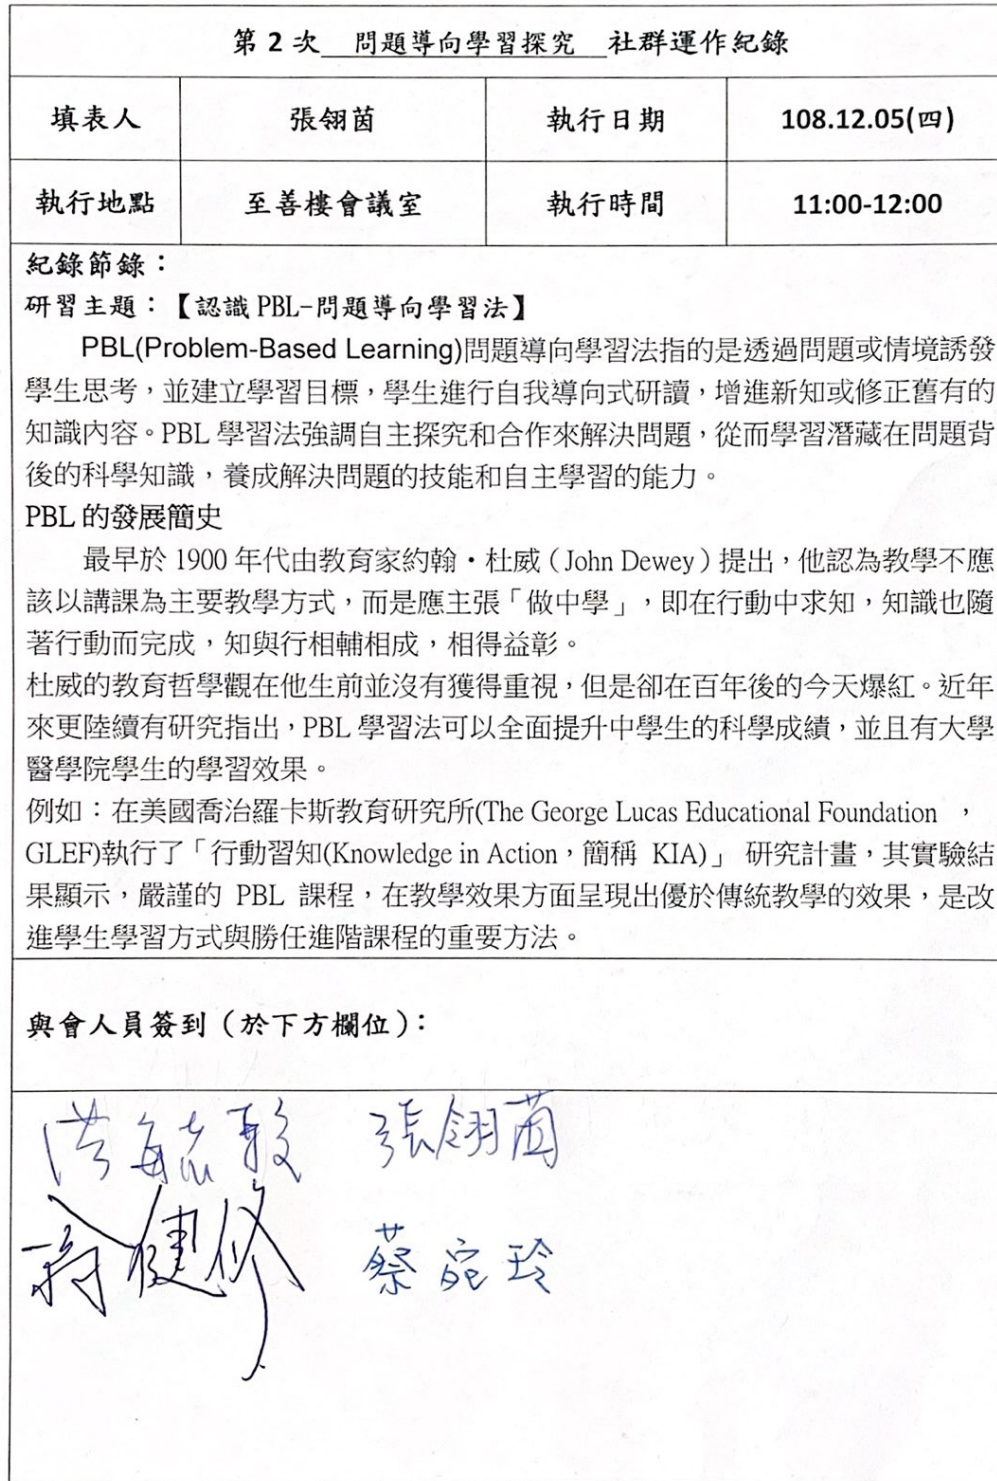 第 2 次 問題導向學習探究 社群運作紀錄
填表人 張翎茵 執行日期 108.12.05(四)
執行地點 至善樓會議室 執行時間 11:00-12:00
紀錄節錄：
研習主題：【認識 PBL-問題導向學習法】
PBL(Problem-Based Learning)問題導向學習法指的是透過問題或情境誘發
學生思考，並建立學習目標，學生進行自我導向式研讀，增進新知或修正舊有的
知識內容。PBL 學習法強調自主探究和合作來解決問題，從而學習潛藏在問題背
後的科學知識，養成解決問題的技能和自主學習的能力。
PBL 的發展簡史
最早於 1900 年代由教育家約翰・杜威（John Dewey）提出，他認為教學不應
該以講課為主要教學方式，而是應主張「做中學」，即在行動中求知，知識也隨
著行動而完成，知與行相輔相成，相得益彰。
杜威的教育哲學觀在他生前並沒有獲得重視，但是卻在百年後的今天爆紅。近年
來更陸續有研究指出，PBL 學習法可以全面提升中學生的科學成績，並且有大學
醫學院學生的學習效果。
例如：在美國喬治羅卡斯教育研究所(The George Lucas Educational Foundation ，
GLEF)執行了「行動習知(Knowledge in Action，簡稱 KIA)」 研究計畫，其實驗結
果顯示，嚴謹的 PBL 課程，在教學效果方面呈現出優於傳統教學的效果，是改
進學生學習方式與勝任進階課程的重要方法。
與會人員簽到（於下方欄位）：
張翎茵
翁健修 蔡宛玲